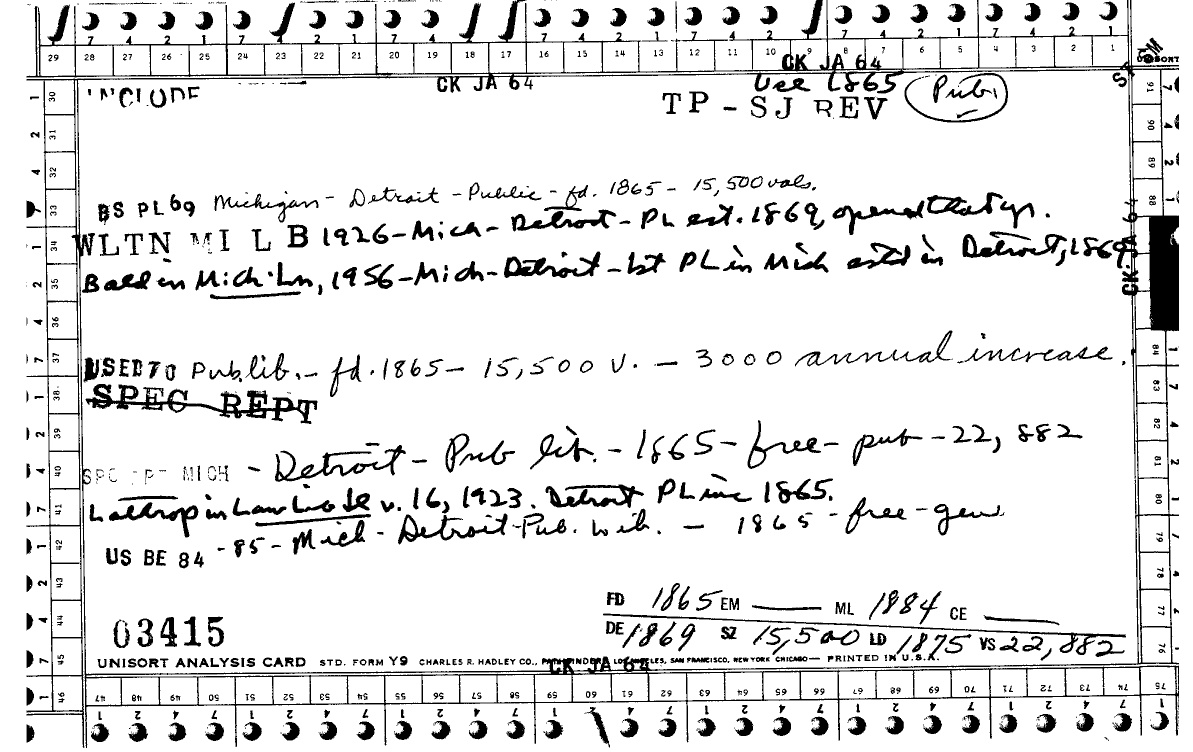 7 4 2 1 7 4 2 1 7 4 2 1 7 4 2 1 7 4 2 1 7 4 2 1
29 28 27 26 25 24 23 22 21 20 19 18 17 16 15 14 13 12 11 10 9 8 7 6 5 4 3 2 1
CK JA 64
CK JA 64
INCLUDE
Use 1865
Pub.
TP - SJ REV
BS PL69 Michigan - Detroit - Public - fd. 1865 - 15,500 vols.
WLTN MI L B 1926 - Mich - Detroit - PL est. 1869, opened that yr.
Bald in Mich Ln, 1956 - Mich - Detroit - 1st PL in Mich estd in Detroit, 1869
CK JA 64
USED70 Pub. lib. - fd. 1865 - 15,500 V. - 3000 annual increase.
SPEC REPT
SPC RPT MICH - Detroit - Pub lib. - 1865 - free - pub - 22,882
Lathrop in v. 16, 1923. Detroit PL inc 1865.
US BE 84-85 - Mich - Detroit Pub. Lib. - 1865 - free - gen
FD 1865 EM ML 1884 CE
DE 1869 SZ 15,500 LD 1875 VS 22,882
03415
UNISORT ANALYSIS CARD STD. FORM Y9 CHARLES R. HADLEY CO., PATHFINDERS LOS ANGELES, SAN FRANCISCO, NEW YORK CHICAGO— PRINTED IN U.S.A.
CK JA 64
46 47 48 49 50 51 52 53 54 55 56 57 58 59 60 61 62 63 64 65 66 67 68 69 70 71 72 73 74 75